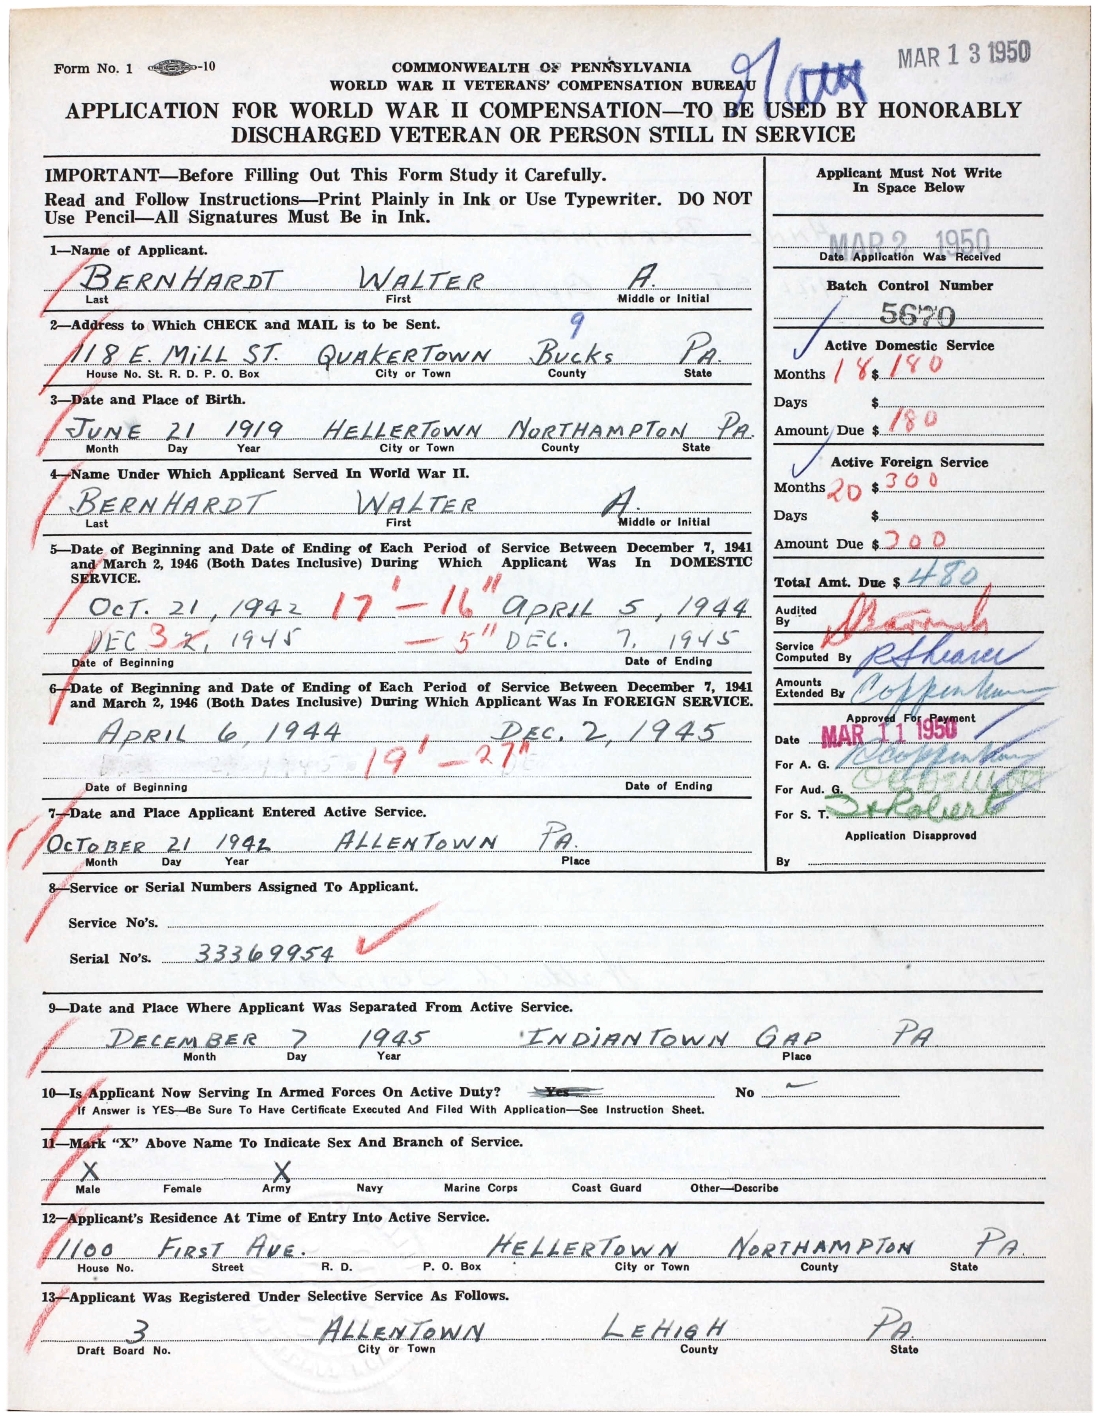 Form No. 1 -10
MAR 13 1950
COMMONWEALTH OF PENNSYLVANIA
WORLD WAR II VETERANS' COMPENSATION BUREAU
APPLICATION FOR WORLD WAR II COMPENSATION—TO BE USED BY HONORABLY
DISCHARGED VETERAN OR PERSON STILL IN SERVICE
IMPORTANT—Before Filling Out This Form Study it Carefully.
Read and Follow Instructions—Print Plainly in Ink or Use Typewriter. DO NOT
Use Pencil—All Signatures Must Be in Ink.
1—Name of Applicant.
BERNHARDT WALTER A.
Last First Middle or Initial
2—Address to Which CHECK and MAIL is to be Sent.
9
118 E. MILL ST. QUAKERTOWN BUCKS PA.
House No. St. R. D. P. O. Box City or Town County State
3—Date and Place of Birth.
JUNE 21 1919 HELLERTOWN NORTHAMPTON PA.
Month Day Year City or Town County State
4—Name Under Which Applicant Served In World War II.
BERNHARDT WALTER A.
Last First Middle or Initial
5—Date of Beginning and Date of Ending of Each Period of Service Between December 7, 1941
and March 2, 1946 (Both Dates Inclusive) During Which Applicant Was In DOMESTIC
SERVICE.
OCT. 21, 1942 17' — 16" APRIL 5, 1944
DEC 3 2, 1945 — 5" DEC. 7, 1945
Date of Beginning Date of Ending
6—Date of Beginning and Date of Ending of Each Period of Service Between December 7, 1941
and March 2, 1946 (Both Dates Inclusive) During Which Applicant Was In FOREIGN SERVICE.
APRIL 6, 1944 DEC. 2, 1945
19' — 27"
Date of Beginning Date of Ending
7—Date and Place Applicant Entered Active Service.
OCTOBER 21 1942 ALLENTOWN PA.
Month Day Year Place
Applicant Must Not Write
In Space Below
MAR 2 1950
Date Application Was Received
Batch Control Number
5670
Active Domestic Service
Months 18 $ 180
Days $
Amount Due $ 180
Active Foreign Service
Months 20 $ 300
Days $
Amount Due $ 300
Total Amt. Due $ 480
Audited
By
Service
Computed By R Shearer
Amounts
Extended By Coppenham
Approved For Payment
Date MAR 11 1950
For A. G.
For Aud. G.
For S. T.
Application Disapproved
By
8—Service or Serial Numbers Assigned To Applicant.
Service No's.
Serial No's. 33369954
9—Date and Place Where Applicant Was Separated From Active Service.
DECEMBER 7 1945 INDIANTOWN GAP PA
Month Day Year Place
10—Is Applicant Now Serving In Armed Forces On Active Duty? Yes No
If Answer is YES—Be Sure To Have Certificate Executed And Filed With Application—See Instruction Sheet.
11—Mark "X" Above Name To Indicate Sex And Branch of Service.
X X
Male Female Army Navy Marine Corps Coast Guard Other—Describe
12—Applicant's Residence At Time of Entry Into Active Service.
1100 FIRST AVE. HELLERTOWN NORTHAMPTON PA.
House No. Street R. D. P. O. Box City or Town County State
13—Applicant Was Registered Under Selective Service As Follows.
3 ALLENTOWN LEHIGH PA.
Draft Board No. City or Town County State